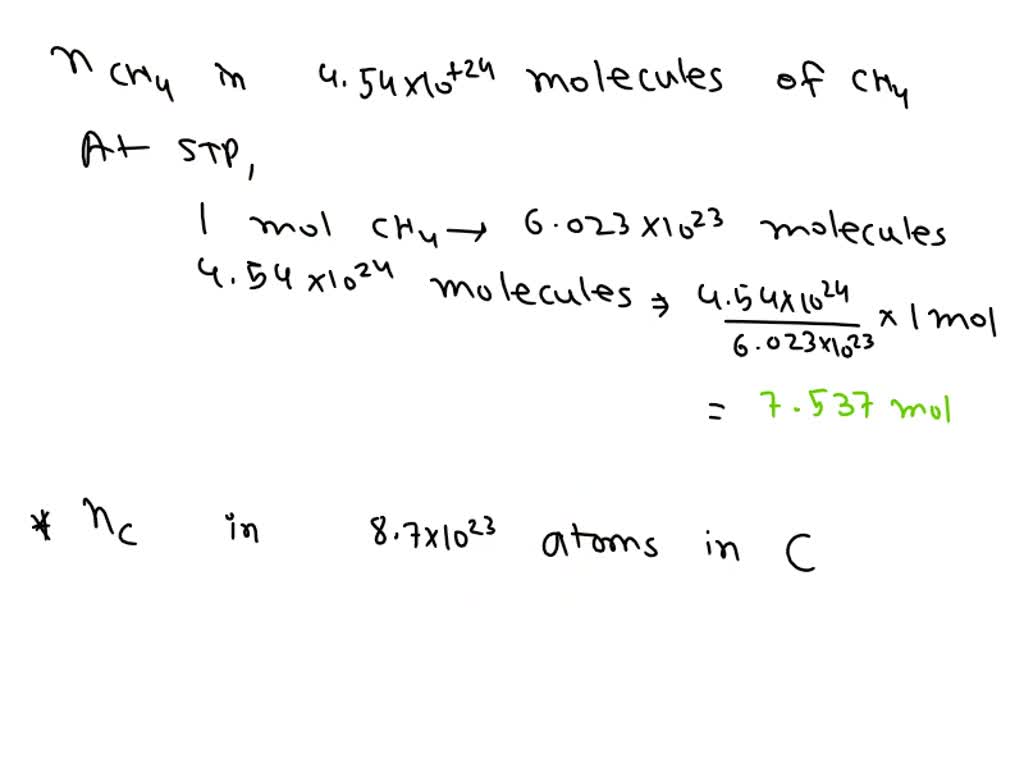 n CH₄ in 4.54×10⁺²⁴ molecules of CH₄
At STP,
1 mol CH₄ → 6.023×10²³ molecules
4.54×10²⁴ molecules ⇒ 4.54×10²⁴ / 6.023×10²³ × 1 mol
= 7.537 mol
* n_C in 8.7×10²³ atoms in C